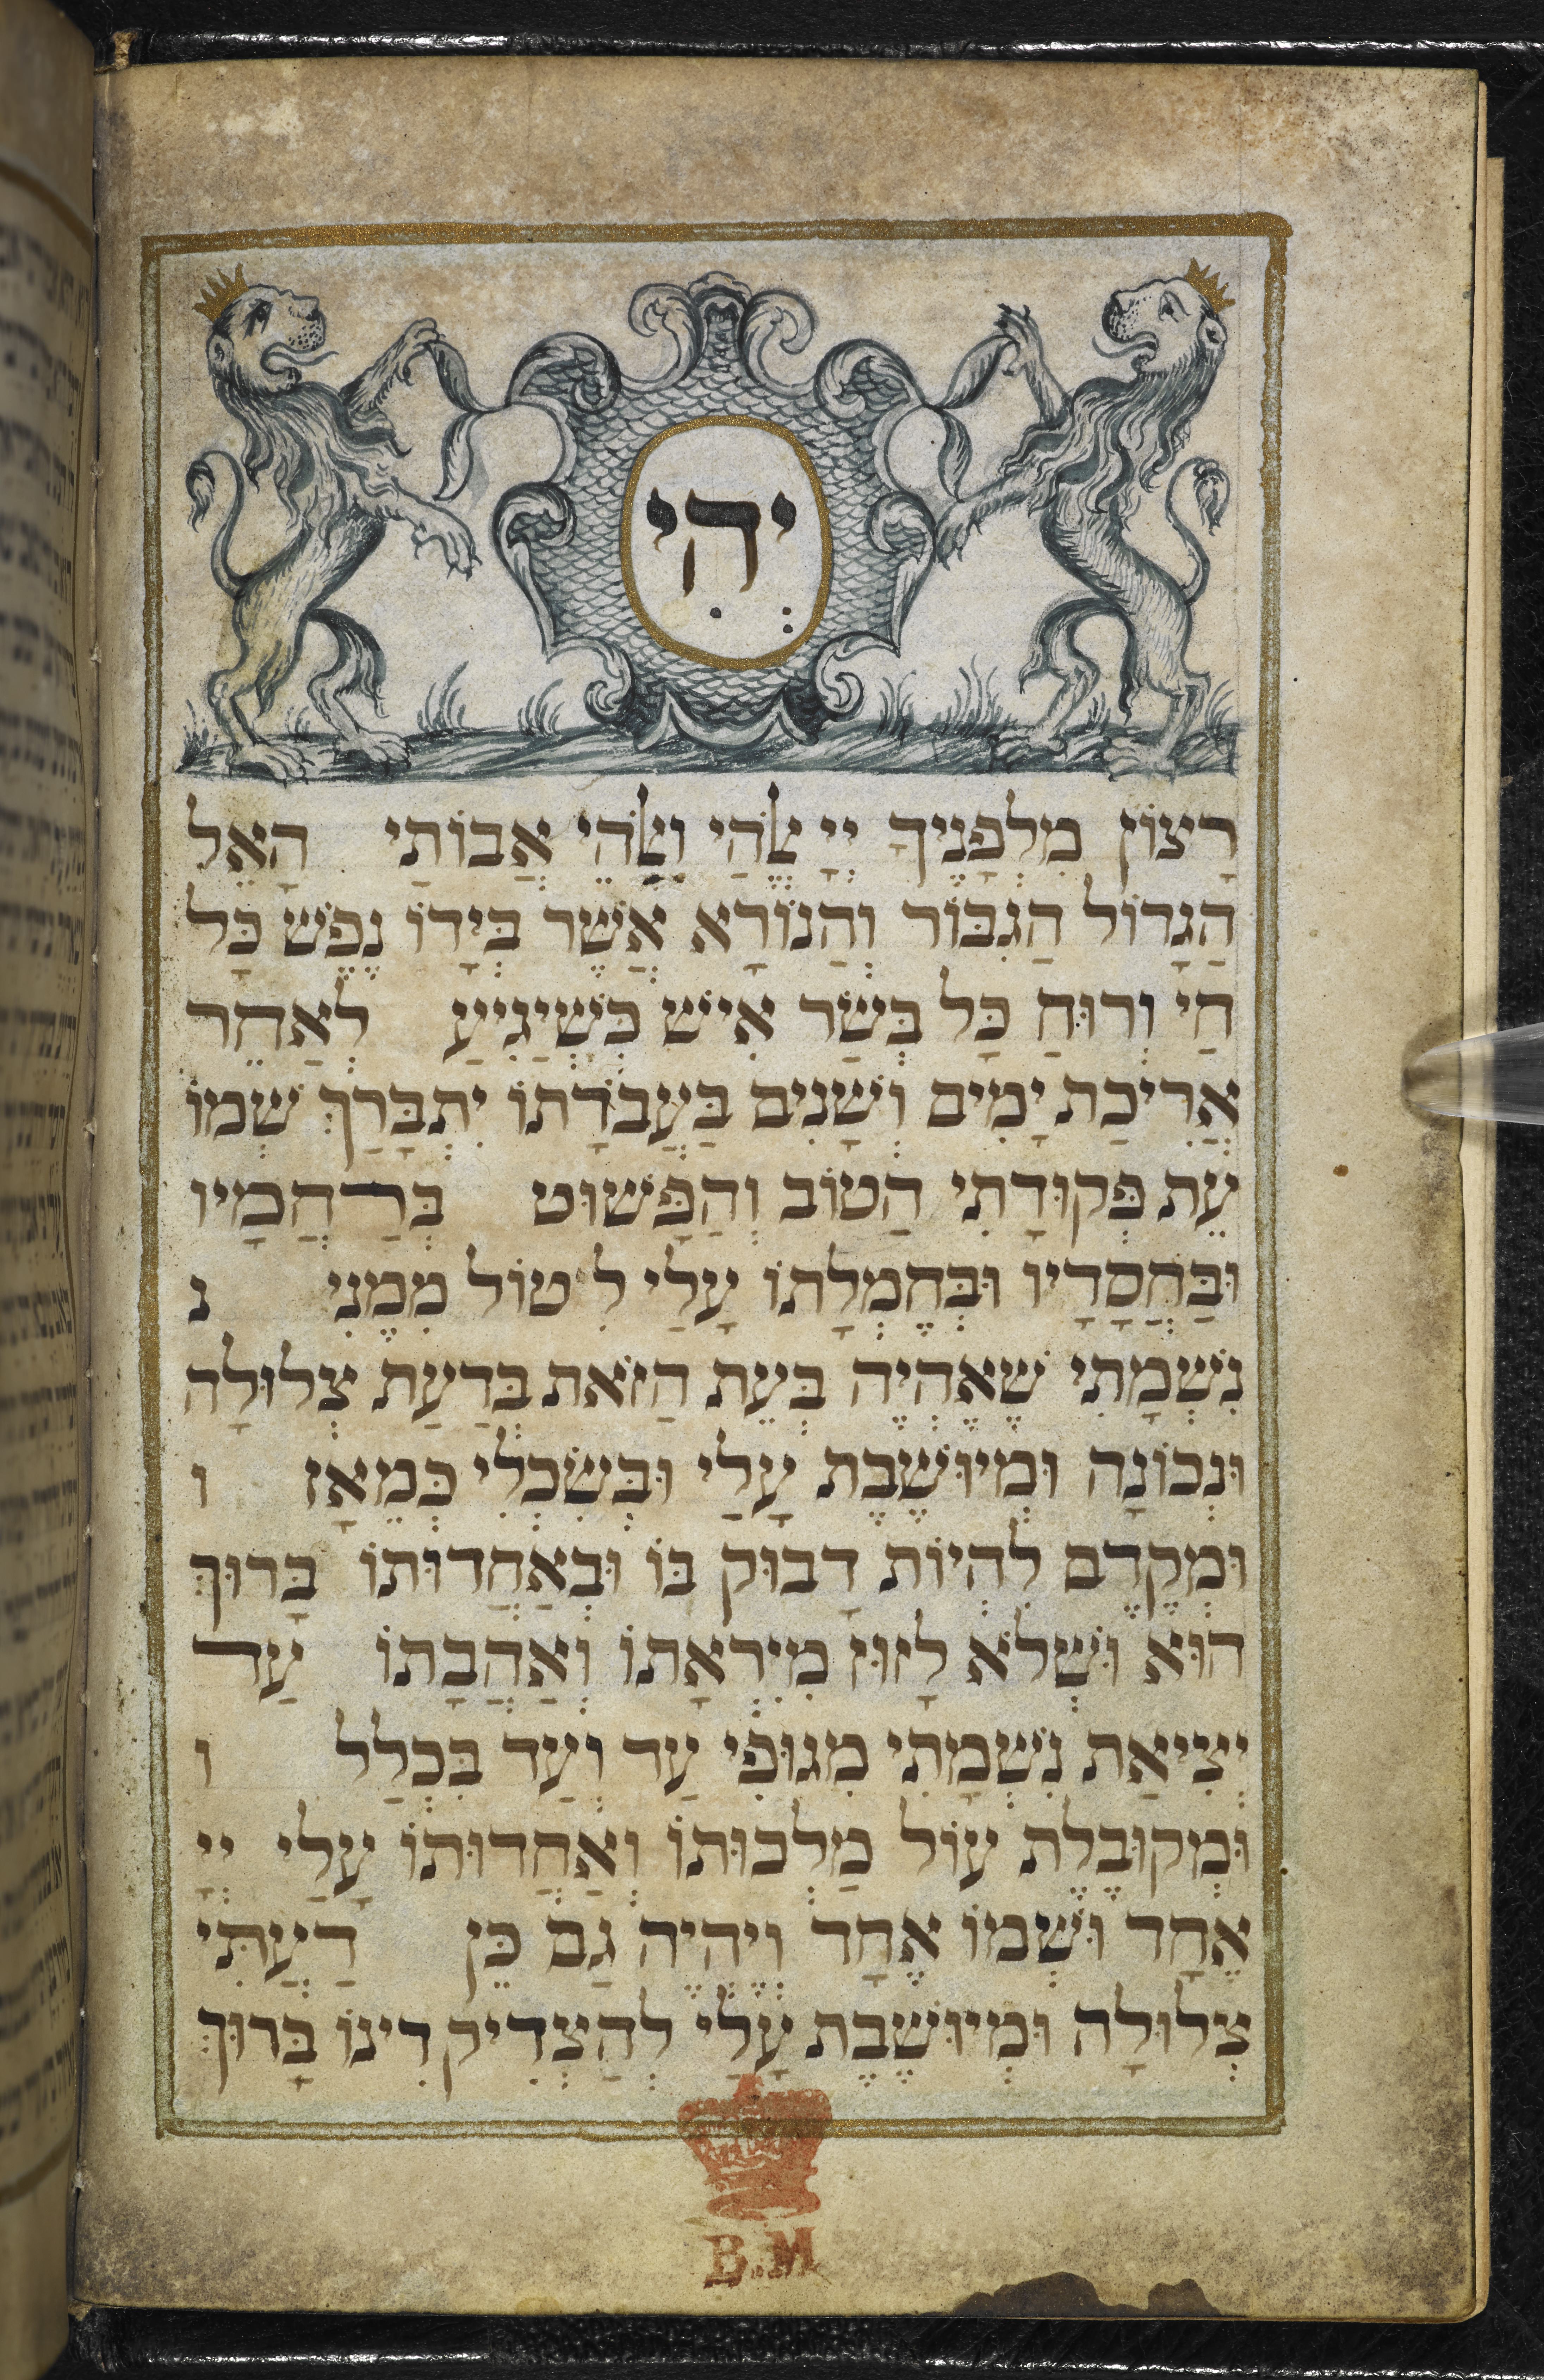 יְהִי
רָצוֹן מִלְפָנֶיךָ יְיָ ﭏֱהַי וֵﭏהֵי אֲבוֹתַי הָאֵל
הַגָדוֹל הַגִבּוֹר וְהַנוֹרָא אֲשֶׁר בְּיָדוֹ נֶפֶשׁ כָּל
חַי וְרוּחַ כָּל בְּשַׂר אִישׁ כְּשֶׁיַגִיעַ לְאַחֵר
אֲרִיכַת יָמִים וְשָׁנִים בַּעֲבֹדָתוֹ יִתְבָּרַךְ שְׁמוֹ
עֵת פְּקוּדָתִי הַטוֹב וְהַפָּשׁוּט בְּרַחֲמָיו
וּבַּחֲסָדָיו וּבְּחֶמְלָתוֹ עָלַי לִיטוֹל מִמֶנִי נ
נִשְׁמָתִי שֶׁאֶהְיֶה בְּעֵת הַזֹאת בְּדַעַת צְלוּלָה
וּנְכוֹנָה וּמְיוּשֶׁבֶת עָלַי וּבְּשִׂכְלִי כְּמֵאָז ו
וּמְקֶדֶם לִהְיוֹת דָבוּק בּוֹ וּבְאַחֲדוּתוֹ בָּרוּךְ
הוּא וּשְׁלֹא לָזוּז מִיִרְאָתוֹ וְאַהֲבָתוֹ עַד
יְצִיאַת נִשְׁמָתִי מִגוּפִי עַד וְעַד בִּכְלַל ו
וּמְקוּבֶלֶת עוֹל מַלְכוּתוֹ וְאַחֲדוּתוֹ עָלַי יְיָ
אֶחָד וּשְׁמוֹ אֶחָד וְיֶהֱיֶה גַם כֵּן דַעֲתִּי
צְלוּלָה וּמְיוּשֶׁבֶת עָלַי לְהַצְדִיק דִינוֹ בָּרוּךְ
B.M